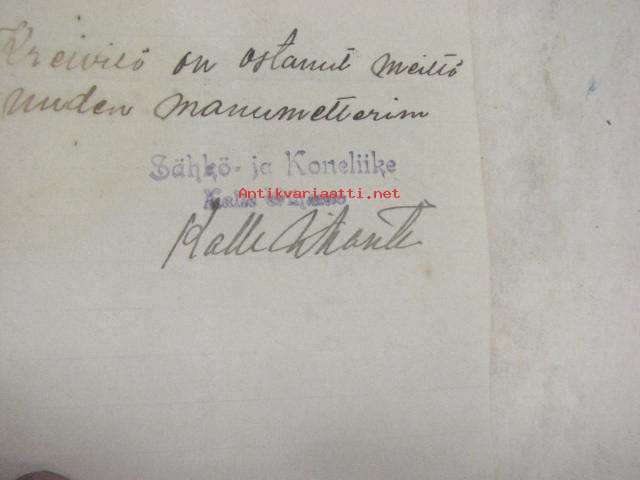 on ostanut meiltä
uuden manumetterim
Sähkö- ja Koneliike
Antikvariaatti.net
Kalle
Kalle